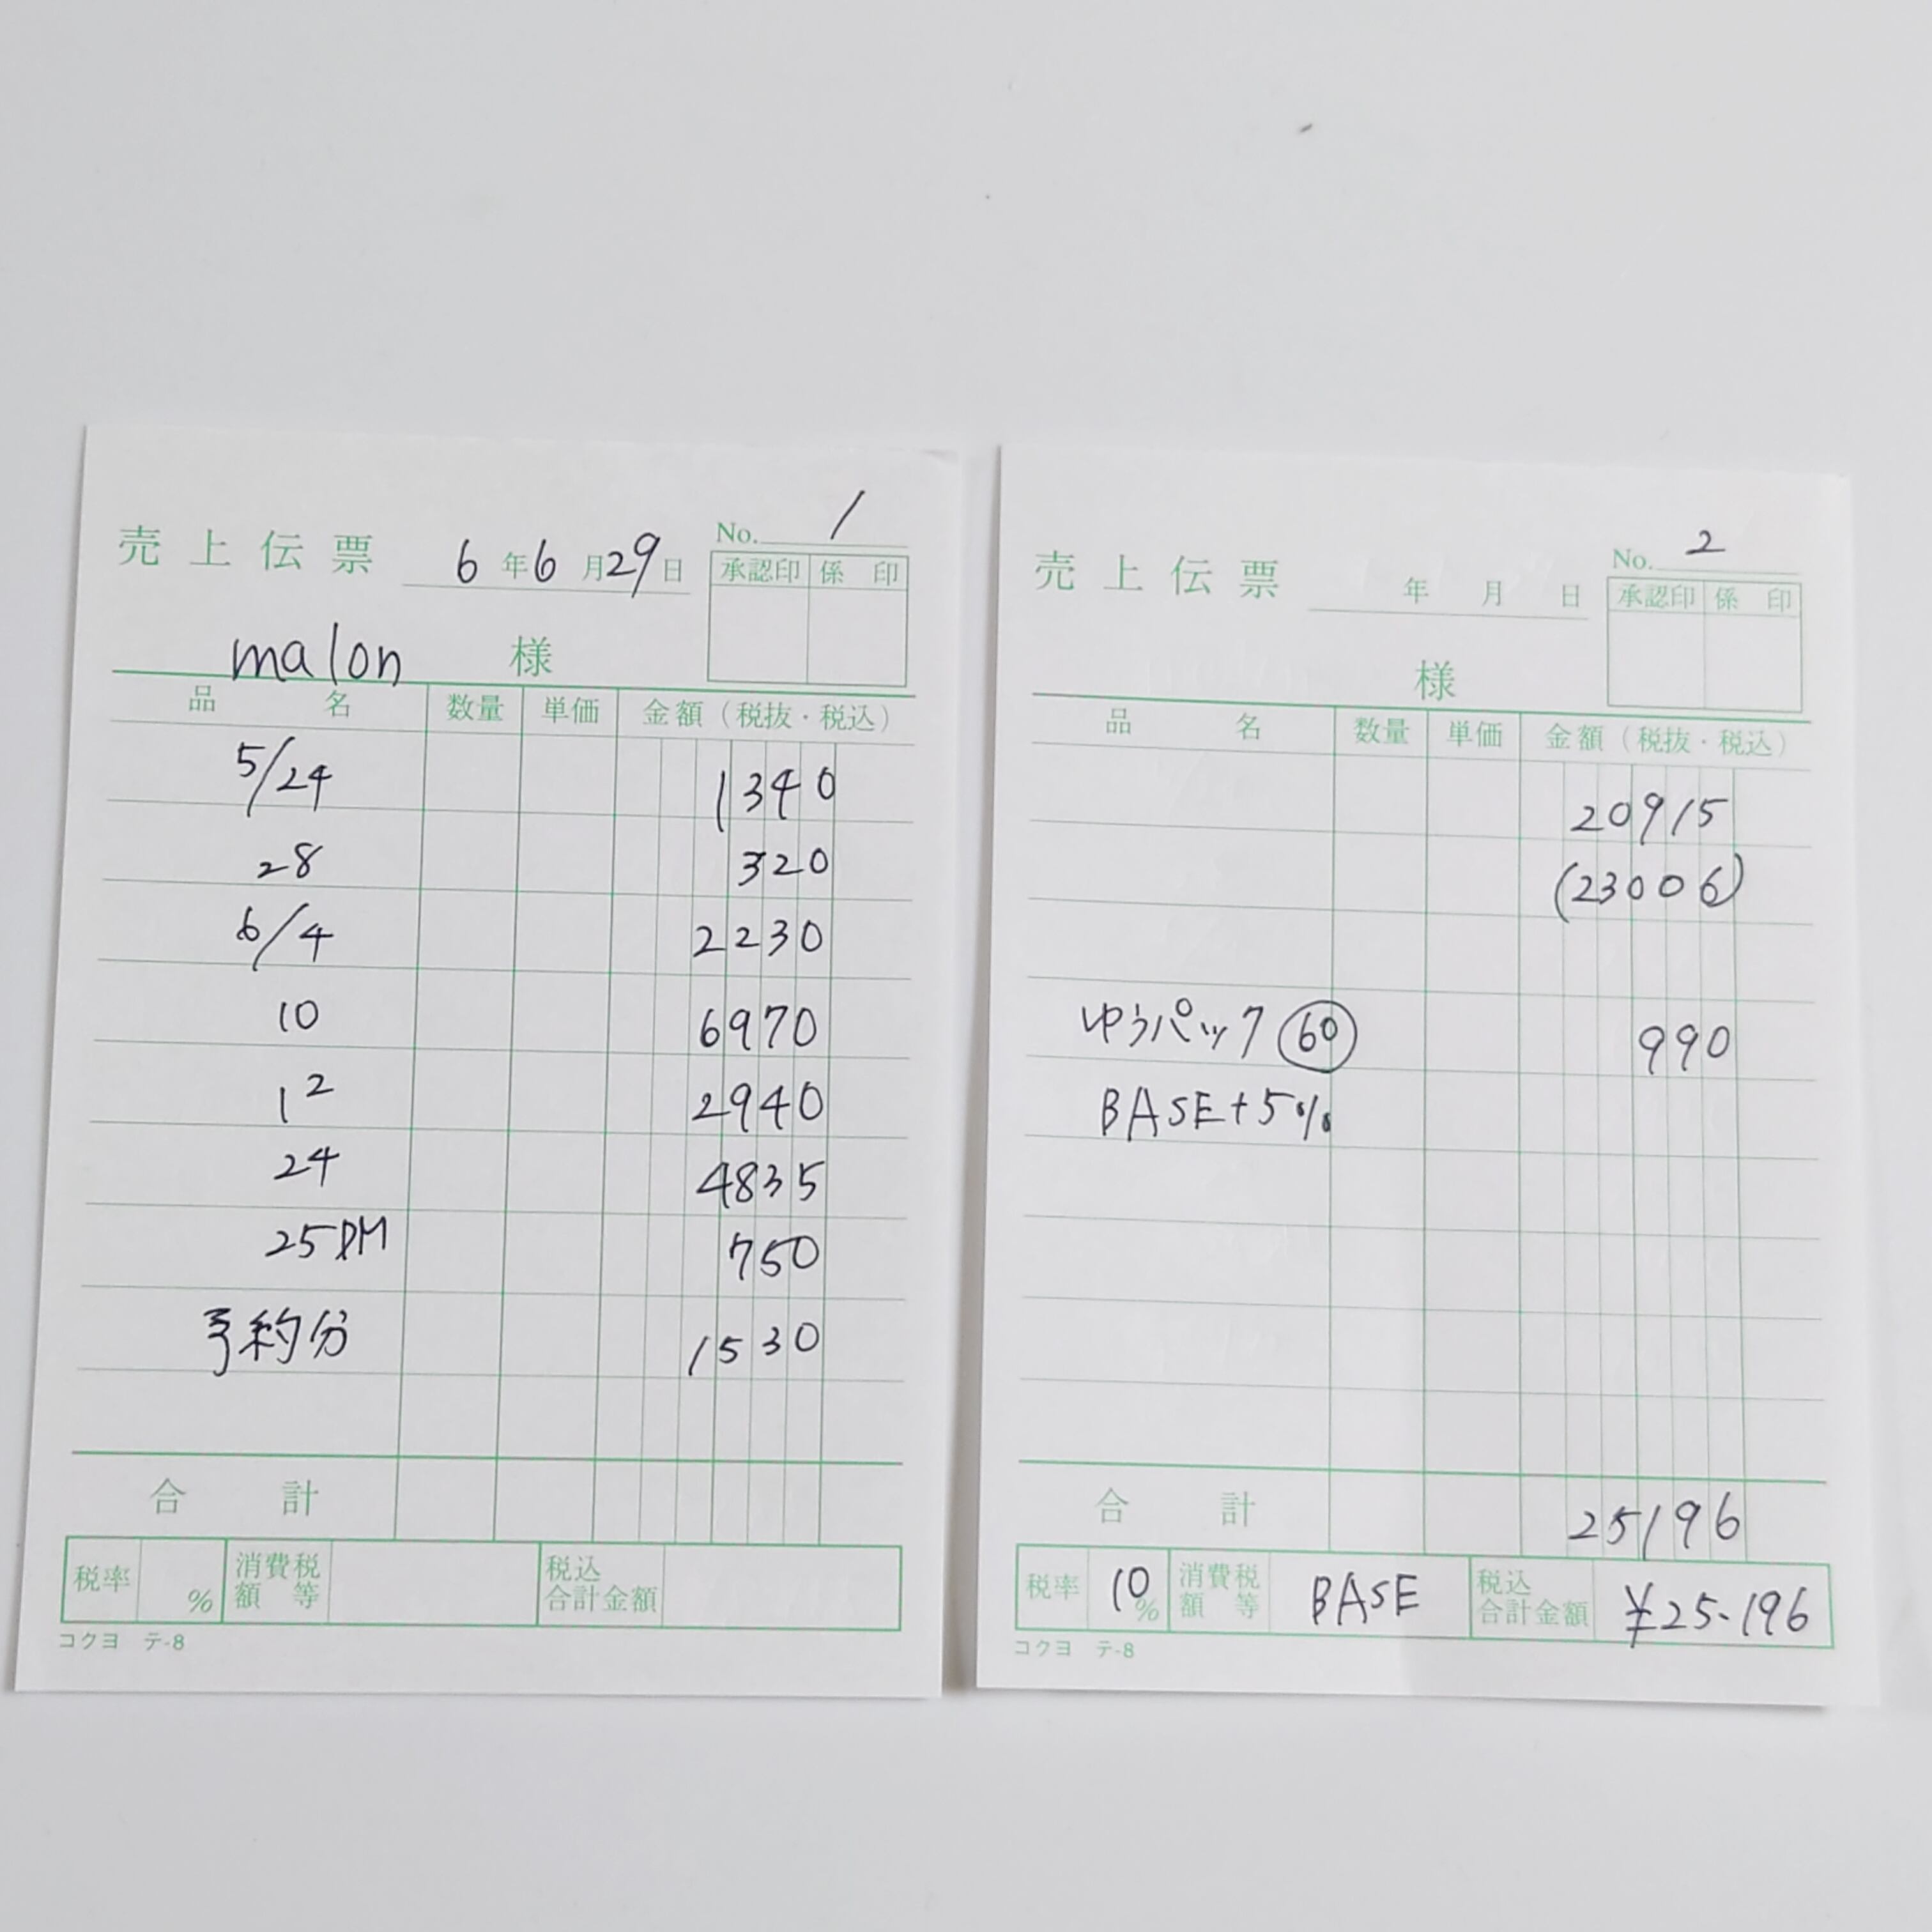 売上伝票 6年6月29日 No. 1
承認印 係印
malon 様
品名 数量 単価 金額（税抜・税込）
5/24 1340
28 320
6/4 2230
10 6970
12 2940
24 4835
25DM 750
予約分 1530
合計
税率 % 消費税額等 税込合計金額
コクヨ テ-8
売上伝票 年 月 日 No. 2
承認印 係印
様
品名 数量 単価 金額（税抜・税込）
20915
(23006)
ゆうパック 60 990
BASE+5%
合計 25196
税率 10% 消費税額等 BASE 税込合計金額 ¥25.196
コクヨ テ-8